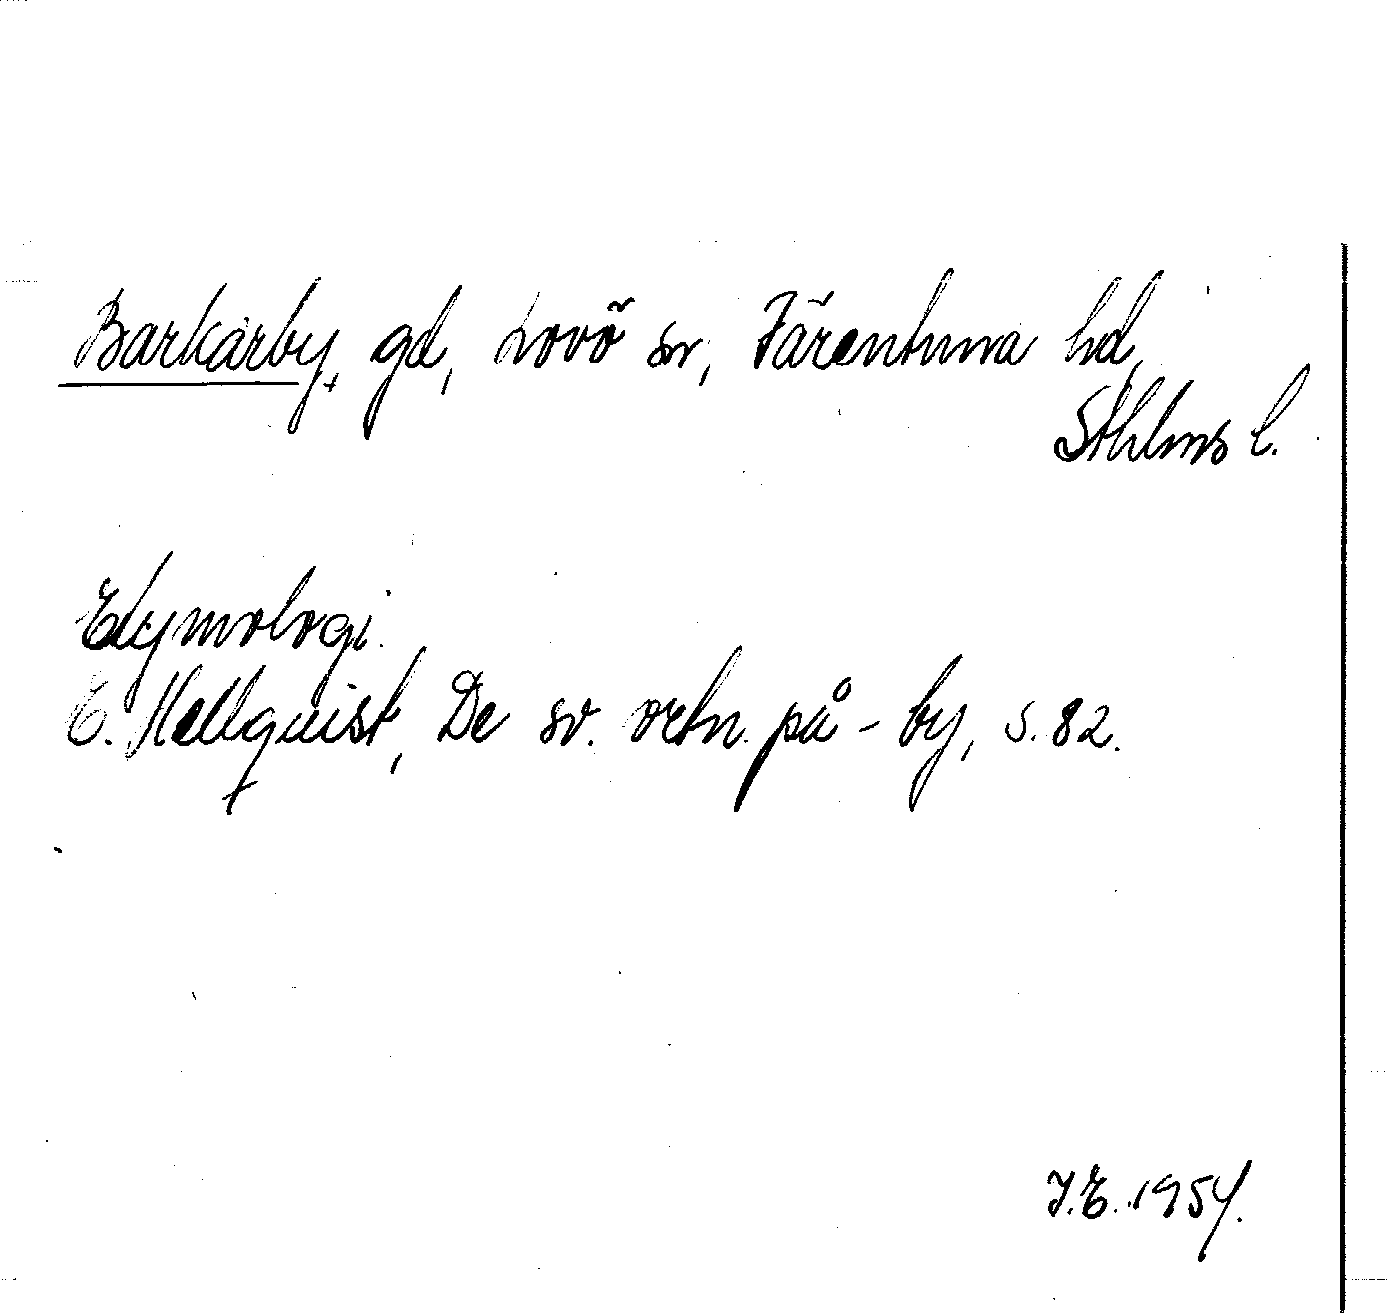 Barkarby, gd, Lovö sn, Färentuna hd,
Sthlms l.
Etymologi.
E. Hellquist, De sv. ortn. på -by, s. 82.
J.E. 1954.